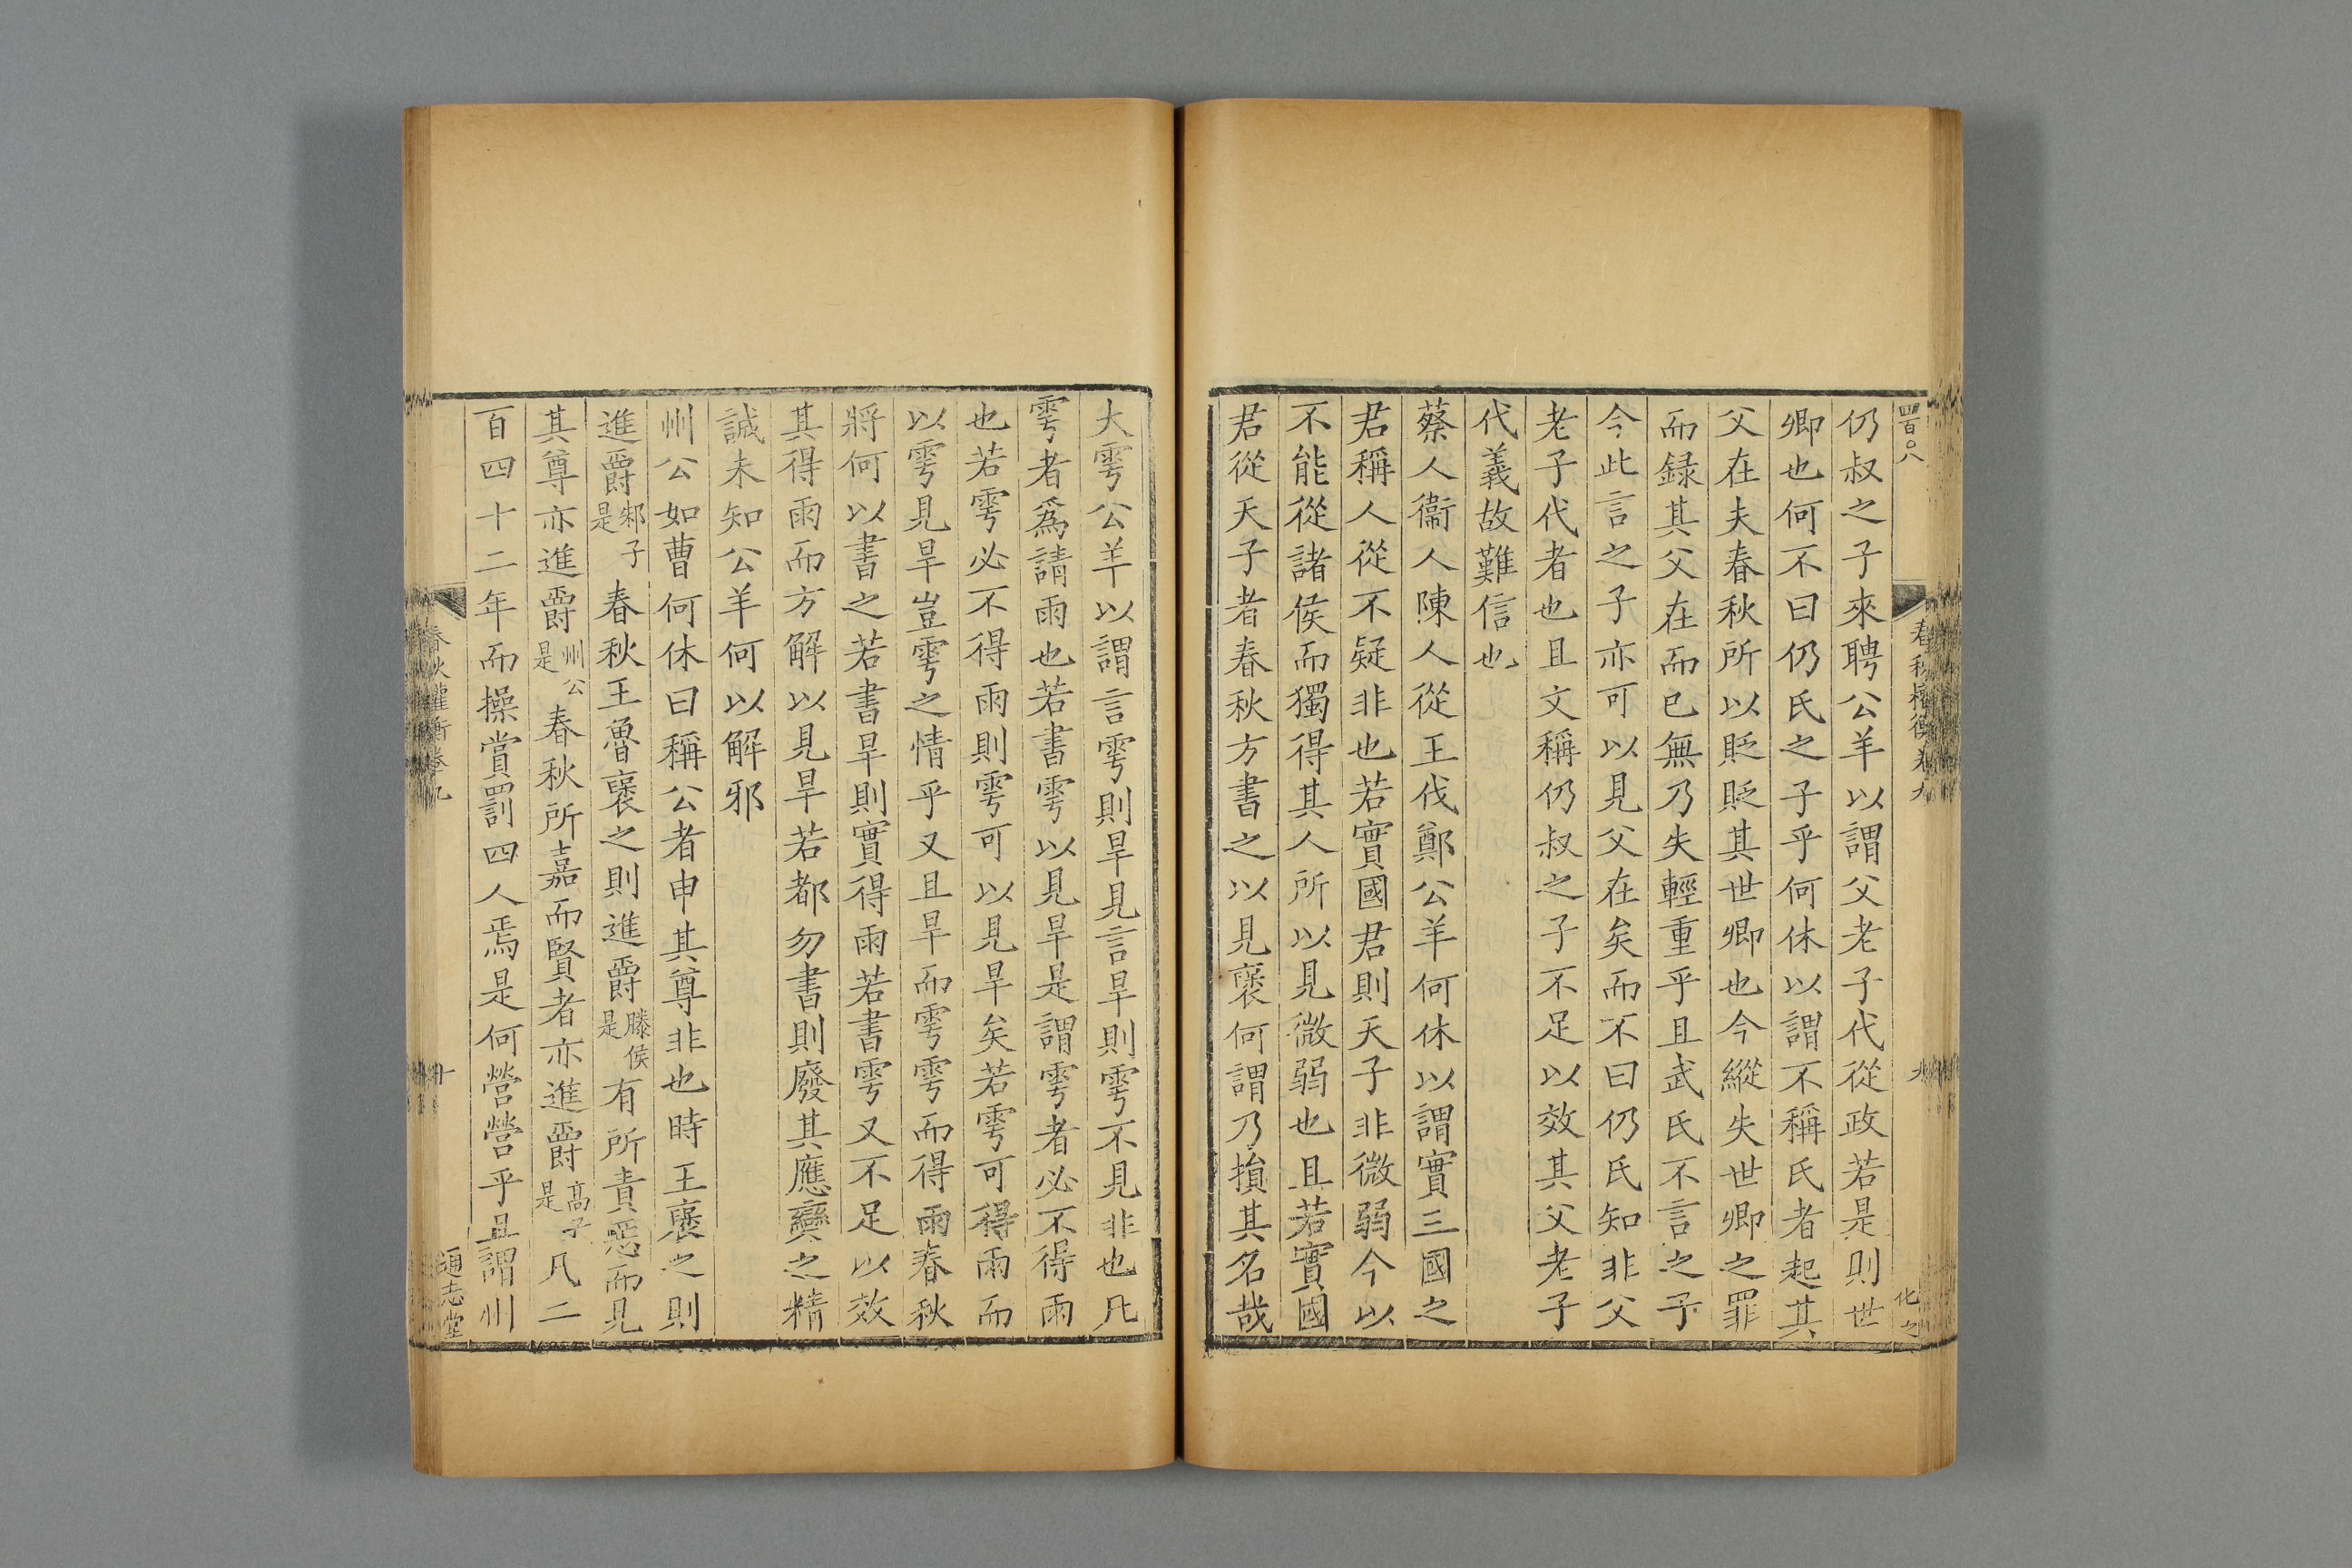 四百○八
春秋權衡卷九
九
化之
仍叔之子來聘公羊以謂父老子代從政若是則世
卿也何不曰仍氏之子乎何休以謂不稱氏者起其
父在夫春秋所以貶貶其世卿也今縱失世卿之罪
而録其父在而已無乃失輕重乎且武氏不言之子
今此言之子亦可以見父在矣而不曰仍氏知非父
老子代者也且文稱仍叔之子不足以效其父老子
代義故難信也
蔡人衞人陳人從王伐鄭公羊何休以謂實三國之
君稱人從不疑非也若實國君則天子非微弱今以
不能從諸侯而獨得其人所以見微弱也且若實國
君從天子者春秋方書之以見襃何謂乃損其名哉
大雩公羊以謂言雩則旱見言旱則雩不見非也凡
雩者爲請雨也若書雩以見旱是謂雩者必不得雨
也若雩必不得雨則雩可以見旱矣若雩可得雨而
以雩見旱豈雩之情乎又且旱而雩雩而得雨春秋
將何以書之若書旱則實得雨若書雩又不足以效
其得雨而方解以見旱若都勿書則廢其應變之精
誠未知公羊何以解邪
州公如曹何休曰稱公者申其尊非也時王襃之則
進爵邾子是春秋王魯襃之則進爵滕侯是有所責惡而見
其尊亦進爵州公是春秋所嘉而賢者亦進爵高子是凡二
百四十二年而操賞罰四人焉是何營營乎且謂州
春秋權衡卷九
十
通志堂